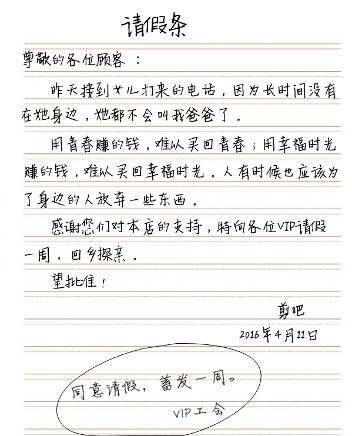 请假条
尊敬的各位顾客：
昨天接到女儿打来的电话，因为长时间没有
在她身边，她都不会叫我爸爸了．
用青春赚的钱，难以买回青春；用幸福时光
赚的钱，难以买回幸福时光．人有时候也应该为
了身边的人放弃一些东西．
感谢您们对本店的支持，特向各位VIP请假
一周，回乡探亲．
望批准！
剪吧
2016年4月11日
同意请假，蓄发一周。
VIP工会